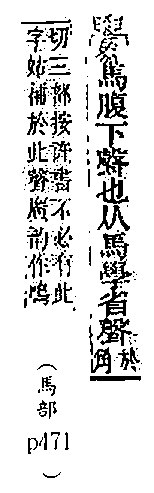 馬腹下聲也从馬學省聲
於角
切三部按許書不必有此
字姑補於此聲廣韵作鳴
（馬部p471）